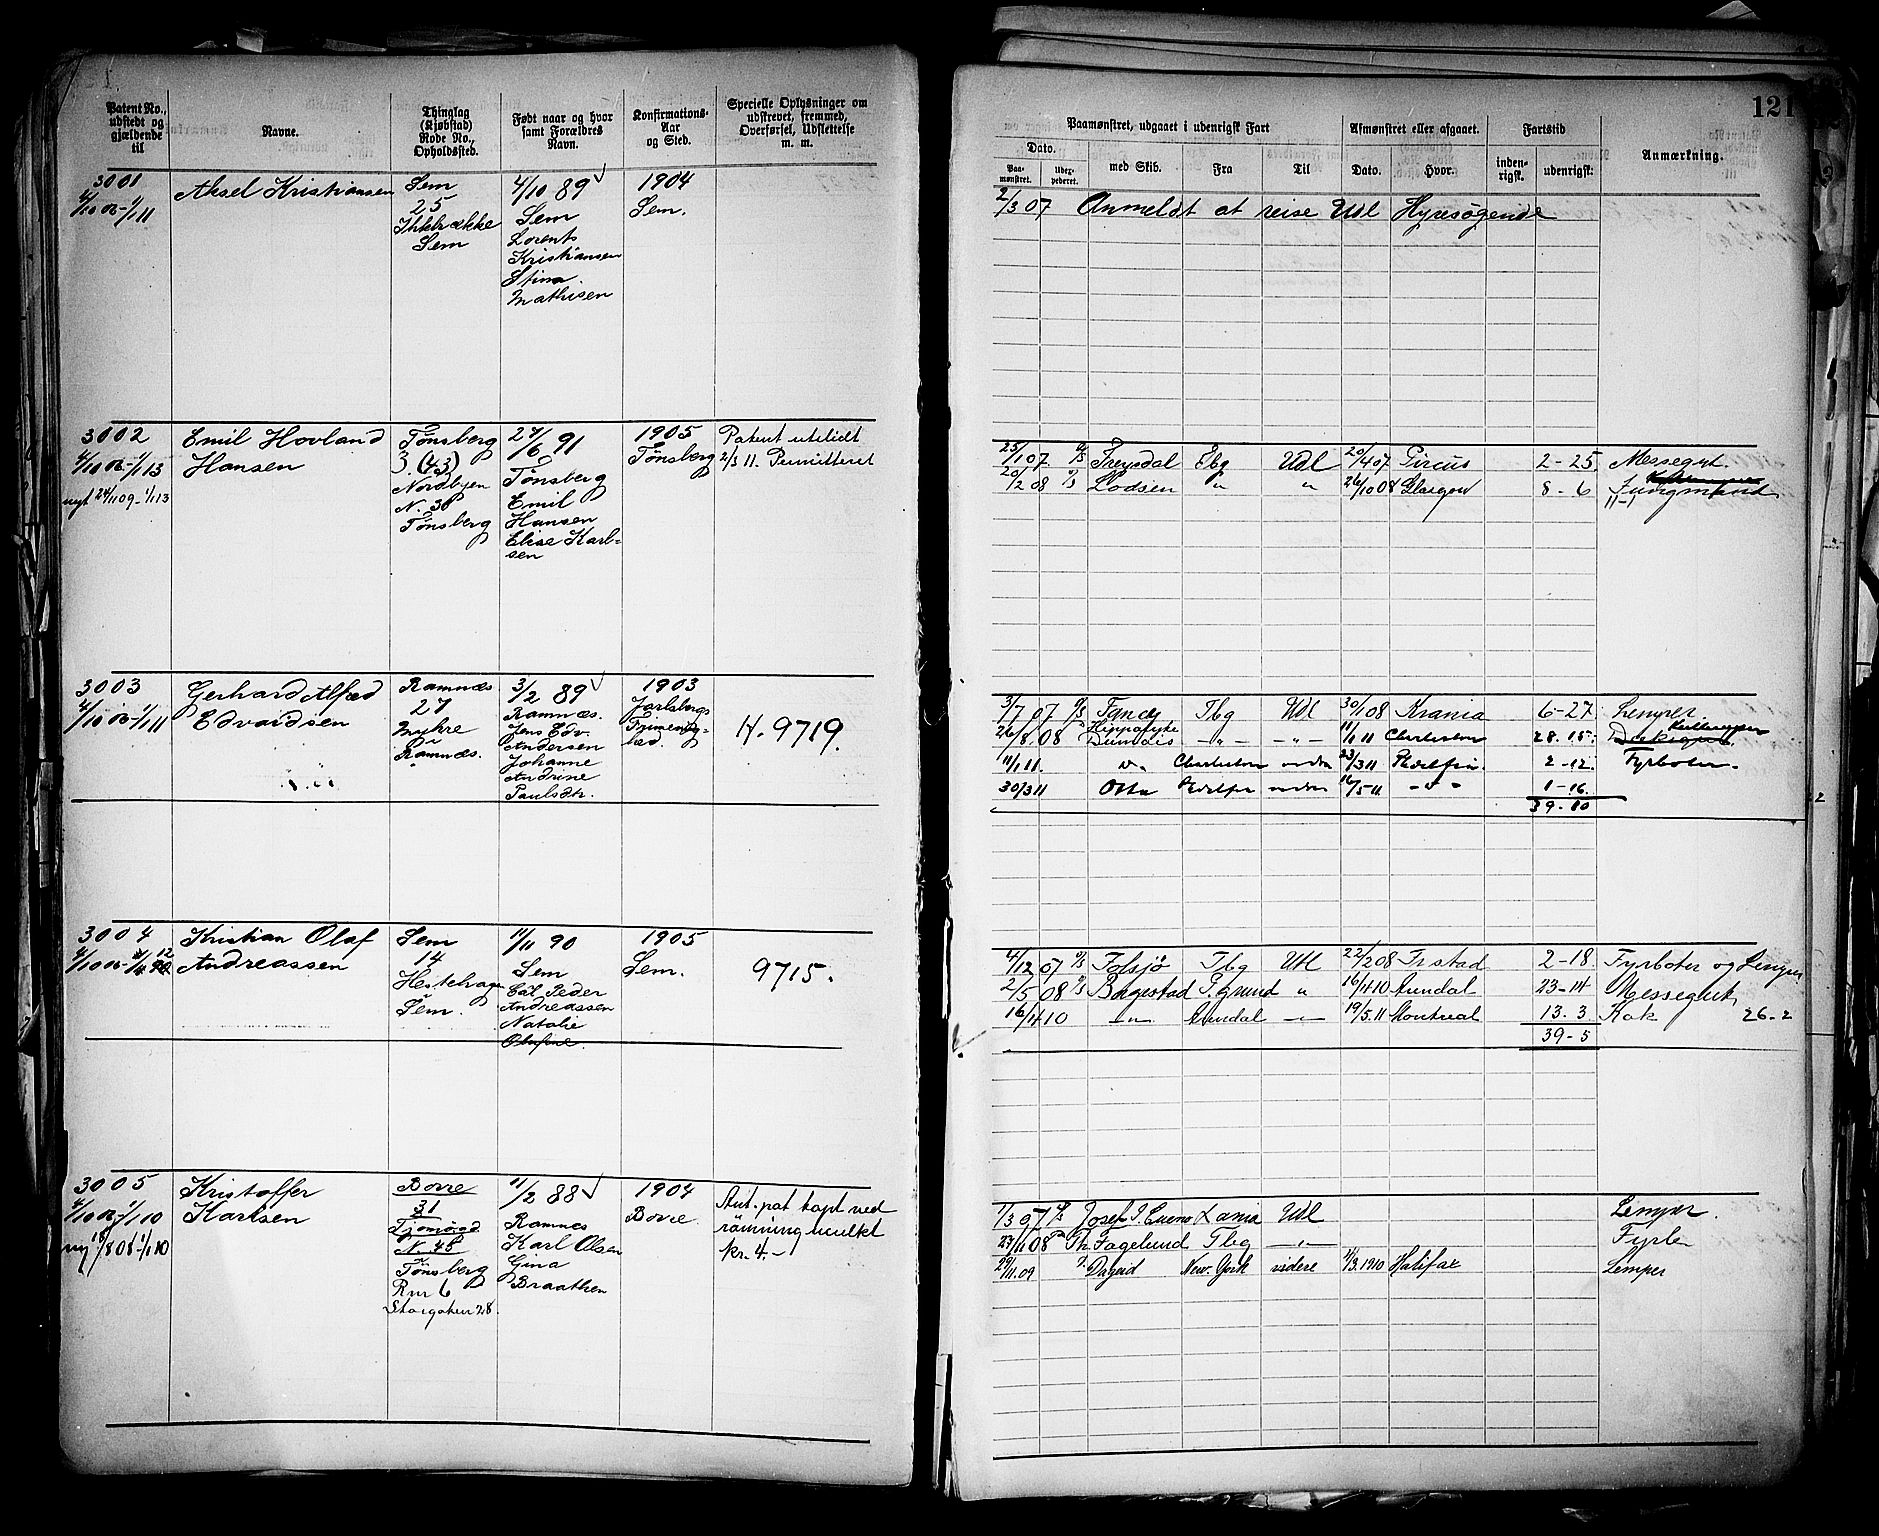 Patent No., udstedt og gjældende til
Navne.
Thinglag (Kjøbstad) Rode No., Opholdssted.
Født naar og hvor samt Forældres Navn.
Konfirmations-Aar og Sted.
Specielle Oplysninger om udskrevet, fremmed, Overførsel, Udslettelse m. m.
3001
4/10 06-1/1 11
Aksel Kristiansen
Sem
25
Sem
4/10 89
Sem
Lorents
Kristiansen
Stina
Mathisen
1904
Sem.
3002
4/10 06-1/1 13
nyt 24/11 09-1/1 13
Emil Hovland
Hansen
Tønsberg
3. (43)
Nordbyen
N. 38
Tønsberg
27/6 91
Tønsberg
Emil
Hansen
Elise Karl-
sen
1905
Tønsberg
Patent utslidt
2/3 11. Permitteret
3003
4/10 06-1/1 11
Gerhard Alfred
Edvardsen
Ramnæs
27
Myhre
Ramnæs.
3/2 89
Ramnæs.
Jens Edv.
Andersen
Johanne
Andrine
Paulsdtr.
1903
Jarlsbergs
H. 9719.
3004
Kristian Olaf
Andreassen
Sem
14
Hestehagen
Sem.
11/11 90
Sem
Carl Peder
Andreassen
Natalie
Olufine.
1905
Sem.
9715.
3005
4/10 06-1/1 10
ny 18/8 08 1/1 10
Kristoffer
Karlsen
Borre
31
N. 48
Tønsberg
Rm 6
Storgaten 28.
11/2 88
Ramnes
Karl Olsen
Gina
Braathen
1904
Borre.
Ant. pat tapt ved
rømning mulkt
kr. 4.-
121
Paamønstret, udgaaet i udenrigsk Fart
Afmønstret eller afgaaet.
Fartstid
Anmærkning.
Dato.
Paa-mønstret.
med Skib.
Fra
Til
Dato.
Hvor.
inden-rigsk.
udenrigsk.
2/3 07 Anmeldt at reise Udl Hyresøgende
25/1 07. D/S Freysdal Tbg Udl 20/4 07 Circus 2-25 Messegut.
20/2 08 D/S Lodsen " " 26/10 08 Glasgow 8-6 Jungmand
11-1
3/7 07 D/S Fancy Tbg Udl 30/1 08 Krania 6-27 Lemper
26/8. 08 Hippolyte Dumois -"- -"- 11/1 11 Charleston 28. 15. Kullemper
11/1 11. Charleston 23/3 11 2-12. Fyrbøter.
30/3 11 16/5 11. 1-16.
39-10
4/12 07 D/S Tolsjø Tbg Udl 22/2 08 Frstad 2-18 Fyrbøter og Lemper
2/5 08 D/S Borgestad P.grund " 16/4 10 Arendal 23-14 Messegut
16/4 10 -"- Arendal -"- 19/5. 11 Montreal 13. 3. Kok 26-2
39-5
1/3 07 Josef J. Cuneo Udl Lemper.
27/11 08 Th. Fagelund Tbg -"- Fyrb
29/11. 09 Dagrid New. York videre 11/3. 1910 Halifax Lemper